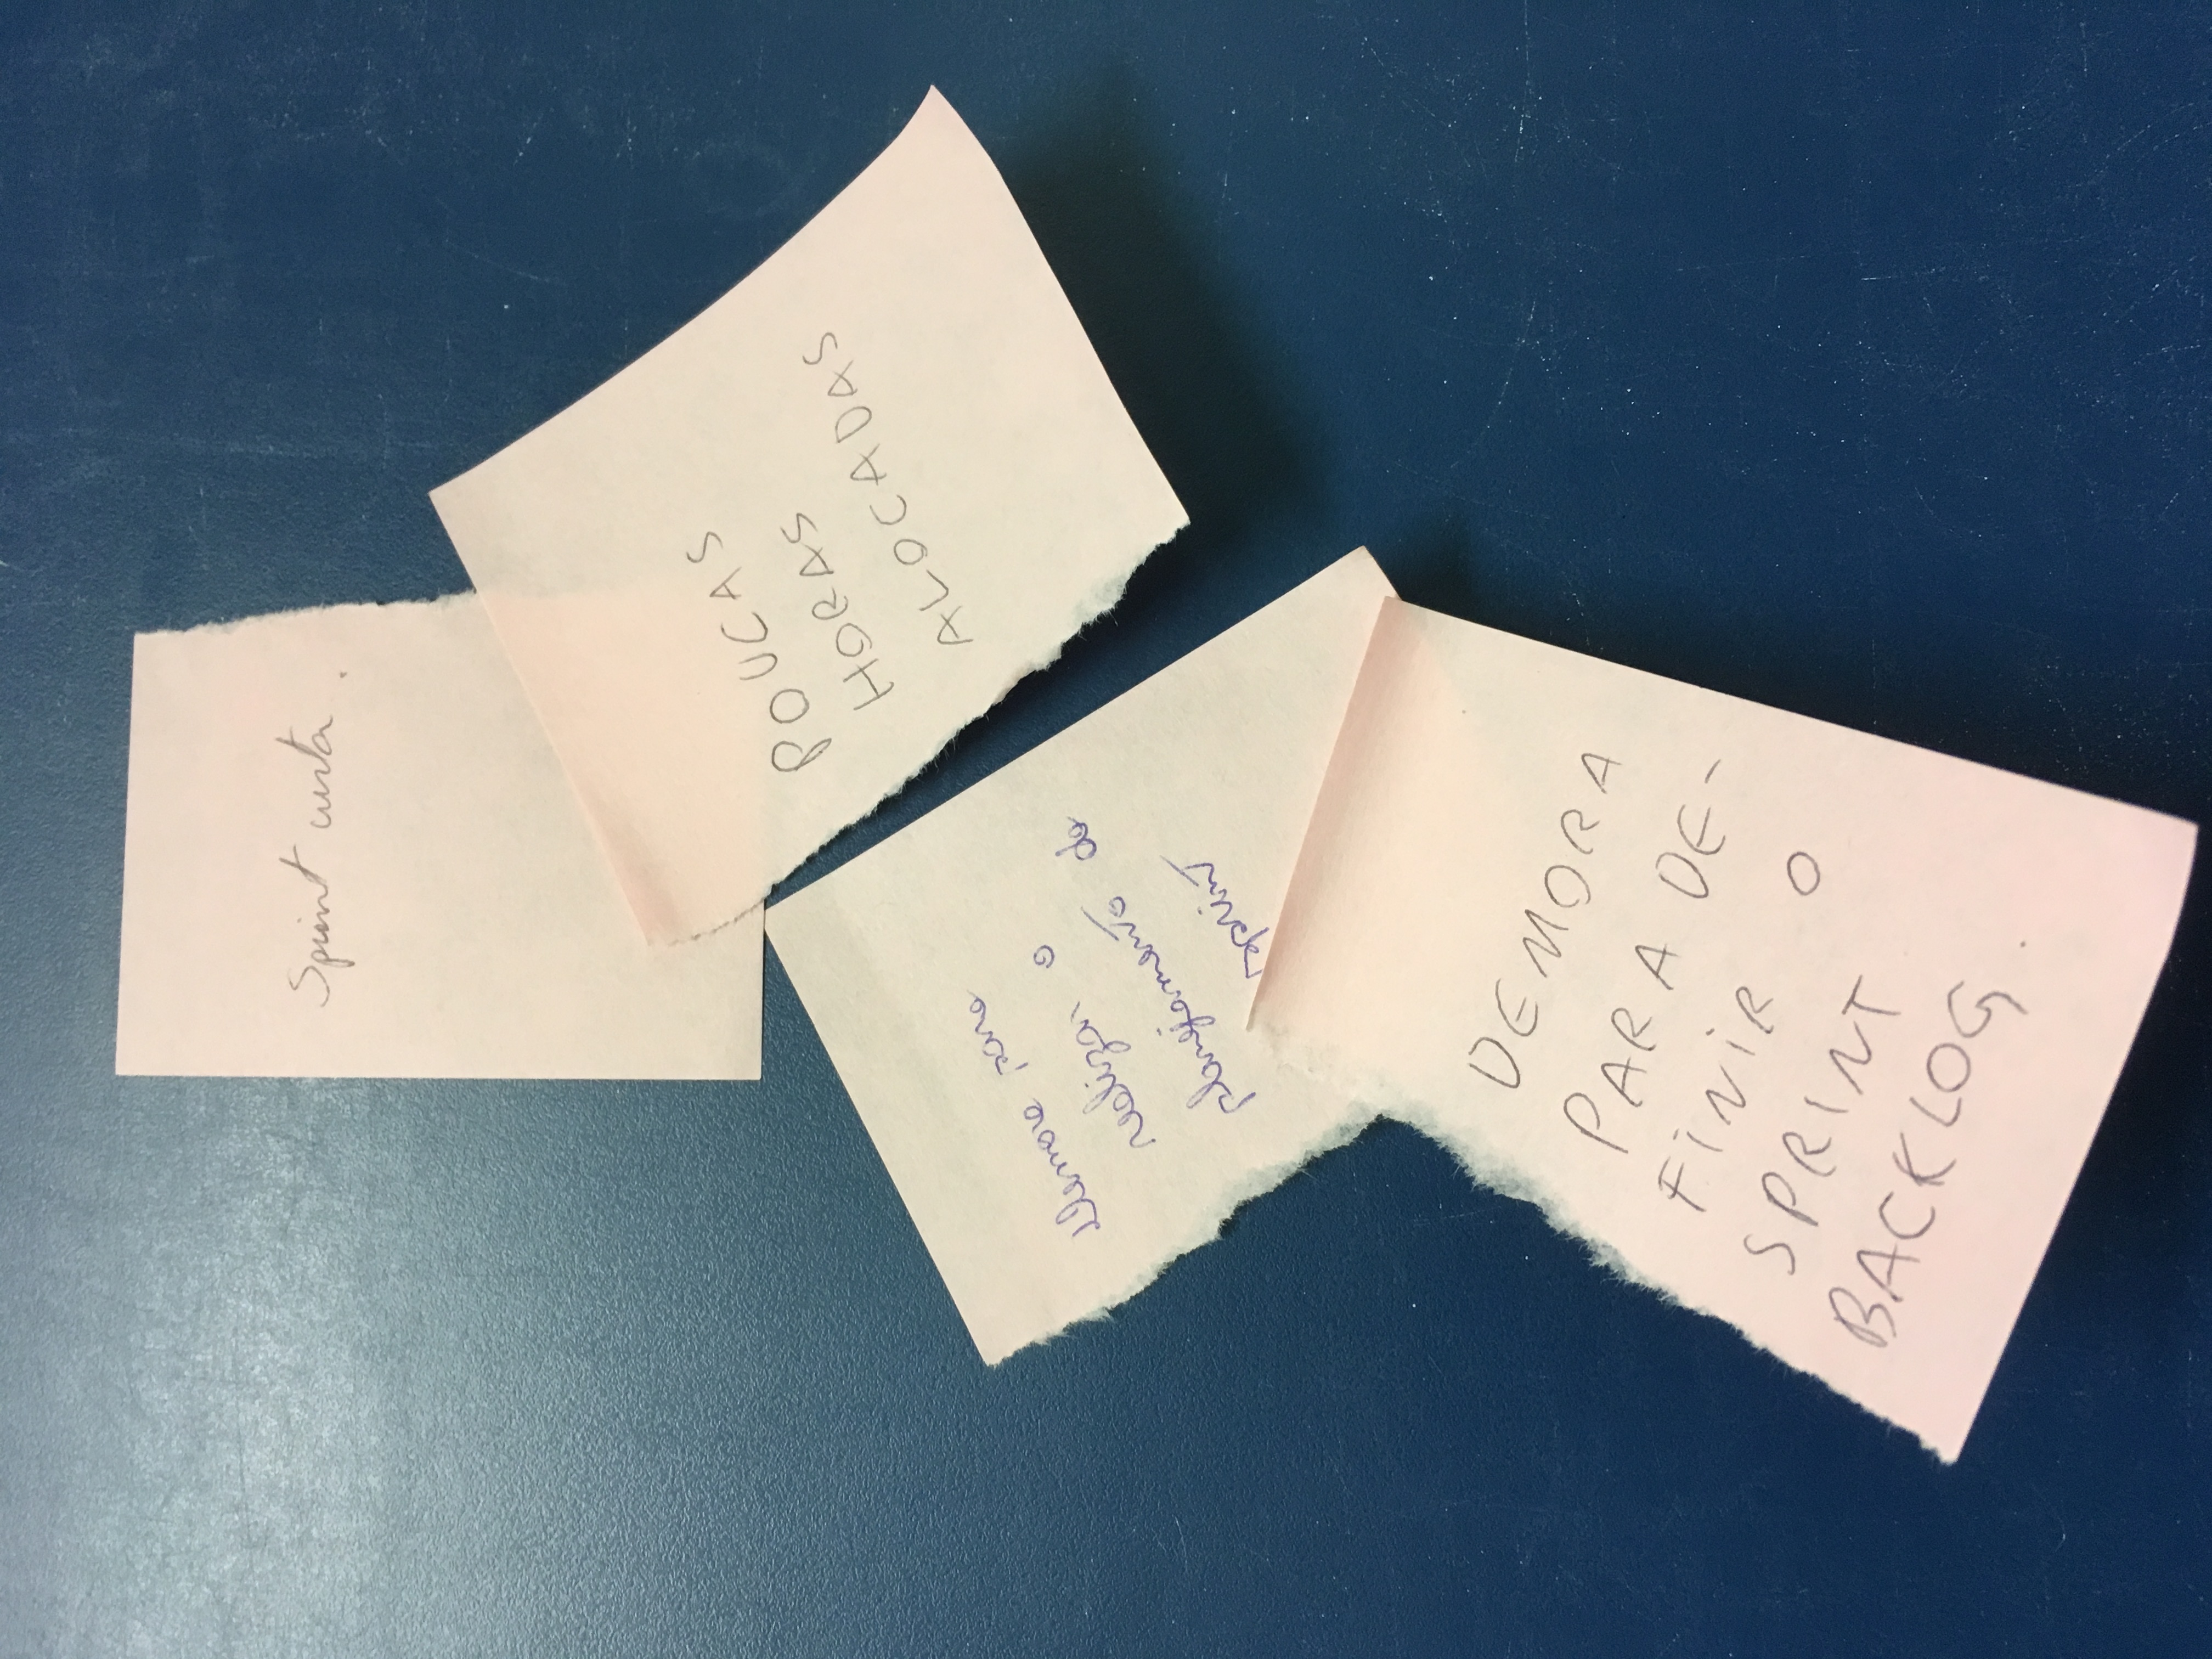 Sprint curta.
POUCAS
HORAS
ALOCADAS
Demora para
realizar o
planejamento da
sprint
DEMORA
PARA DE-
FINIR O
SPRINT
BACKLOG.